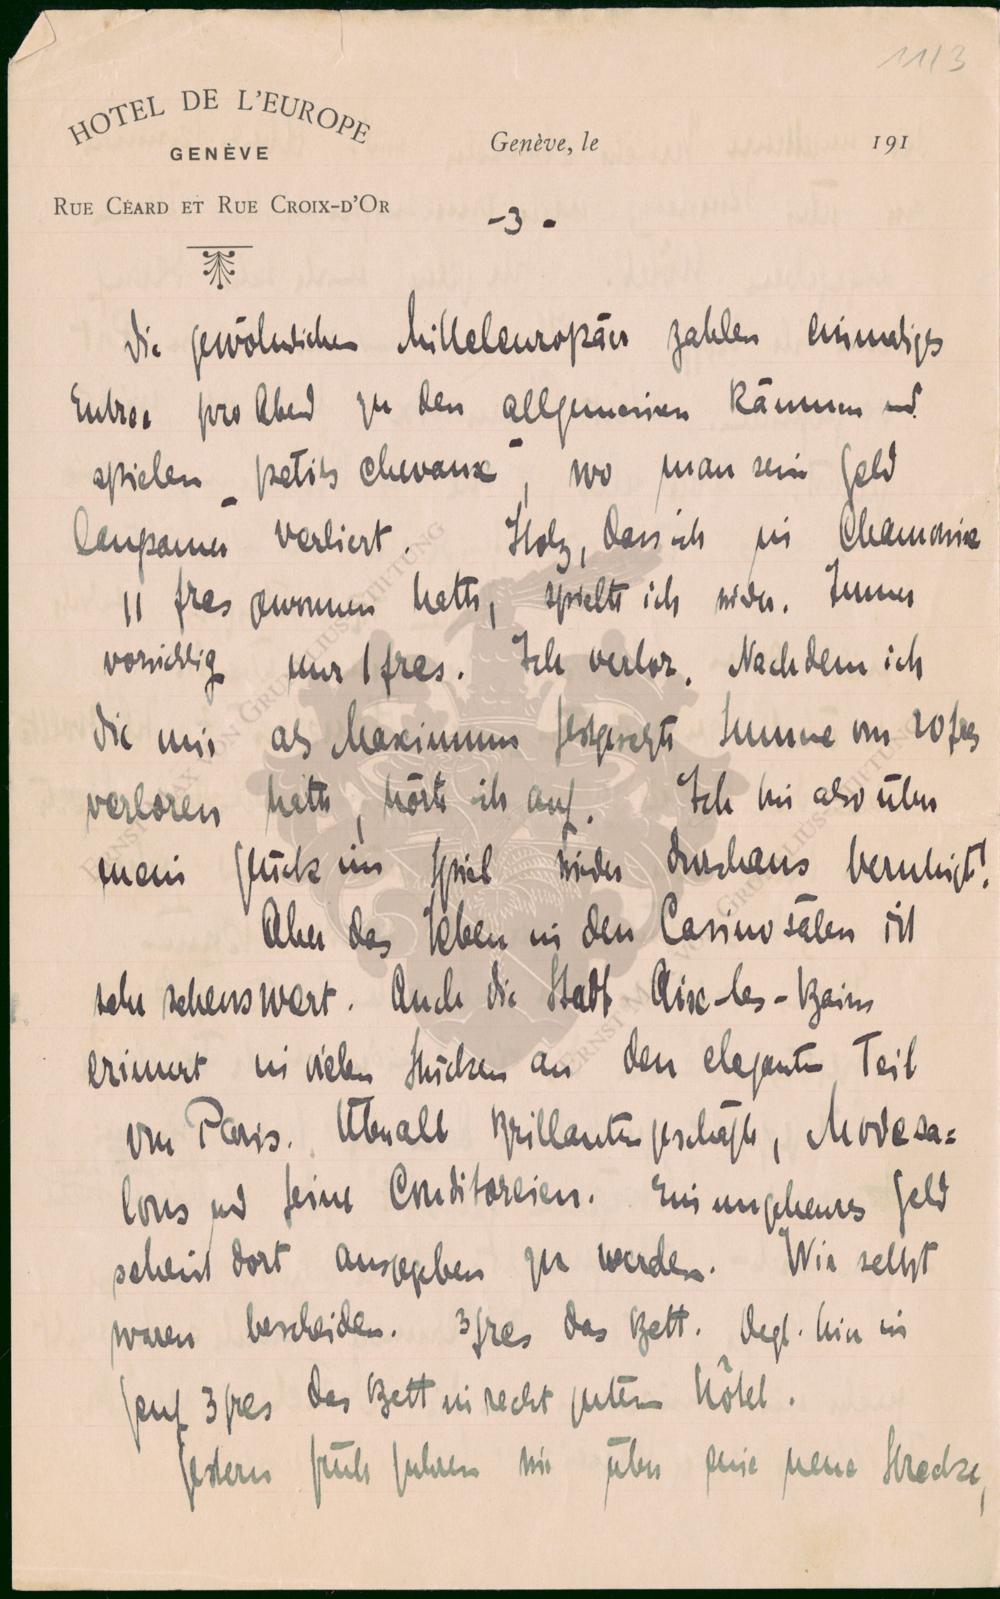 11/3
HOTEL DE L'EUROPE
GENÈVE
RUE CÉARD ET RUE CROIX-D'OR
Genève, le 191
-3-
Die gewöhnlichen Mitteleuropäer zahlen einmaliges
Entree pro Abend zu den allgemeinen Räumen und
spielen „petits chevaux“, wo man sein Geld
langsamer verliert. Stolz, dass ich in Chamonix
11 frcs gewonnen hatte, spielte ich wieder. Immer
vorsichtig nur 1 frcs. Ich verlor. Nachdem ich
die mir als Maximum festgesetzte Summe von 20 frcs
verloren hatte, hörte ich auf. Ich bin also über
mein Glück im Spiel wieder durchaus beruhigt!
Aber das Leben in den Casinosälen ist
sehr sehenswert. Auch die Stadt Aix-les-Bains
erinnert in vielen Stücken an den eleganten Teil
von Paris. Überall Brillantengeschäfte, Modesa=
lons und feine Conditoreien. Ein ungeheures Geld
scheint dort ausgegeben zu werden. Wir selbst
waren bescheiden. 3 frcs das Bett. Degl. hier in
Genf 3 frcs das Bett in recht gutem Hôtel.
Gestern früh fuhren wir über eine neue Strecke,